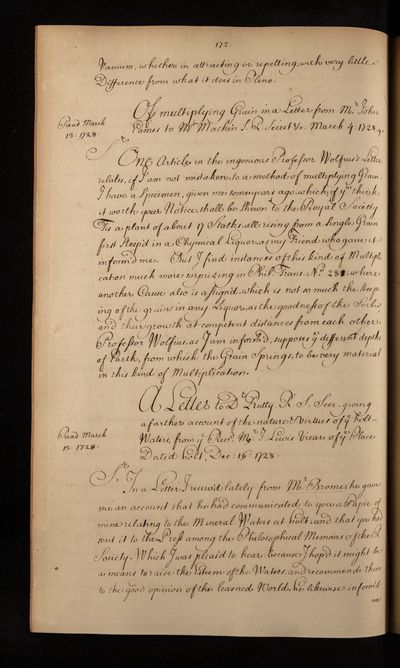 172.
Vacuum, whether in attracting or repelling, with very little
Difference from what it does in Pleno.
Of multiplying Grain in a Letter from Mr. John
Eames to Mr Machin S. R. Secret. &c. March 4. 1728/9.
Read March
13. 1728.
Sr.
One Article in the ingenious Professor Wolfius's Letter
relates, if I am not mistaken, to a method of multiplying Grain,
I have a Specimen, given me some years ago, which, if you think
it worth your Notice, shall be shown to the Royal Society,
Tis a plant of about 17 Stalks, all rising from a single Grain
first steep'd in a Chymical Liquor, as my Friend who gave it
inform'd me. But I find instances of this kind of Multipli
cation much more surprizing in Phil. Trans. No. 282. where
another Cause also is assign'd, which is not so much the steep
ing of the grains in any Liquor, as the goodness of the Soile,
and their growth at competent distances from each other.
Professor Wolfius, as I am inform'd, supposes ye different depths
of Earth, from which the Grain Springs, to be very material
in this kind of Multiplication.
A Letter to Dr. Rutty R. S. Secr. giving
a farther account of the nature & Virtues of ye Holt-
Waters, from ye Revd. Mr. J. Lewis Vicar of ye Place
Dated Holt, Dec: 16 1728.
Read March
13. 1728.
Sr.
In a Letter I receiv'd lately from Mr. Bromer he gave
me an account that he had communicated to you a Paper of
mine relating to the Mineral Waters at Holt; and that you had
sent it to the Press among the Philosophical Memoirs of the R.
Society. Which I was pleas'd to hear, because I hop'd it might be
a means to raise the Esteem of the Waters, and recommend them
to the good opinion of the learned World. he likewise inform'd